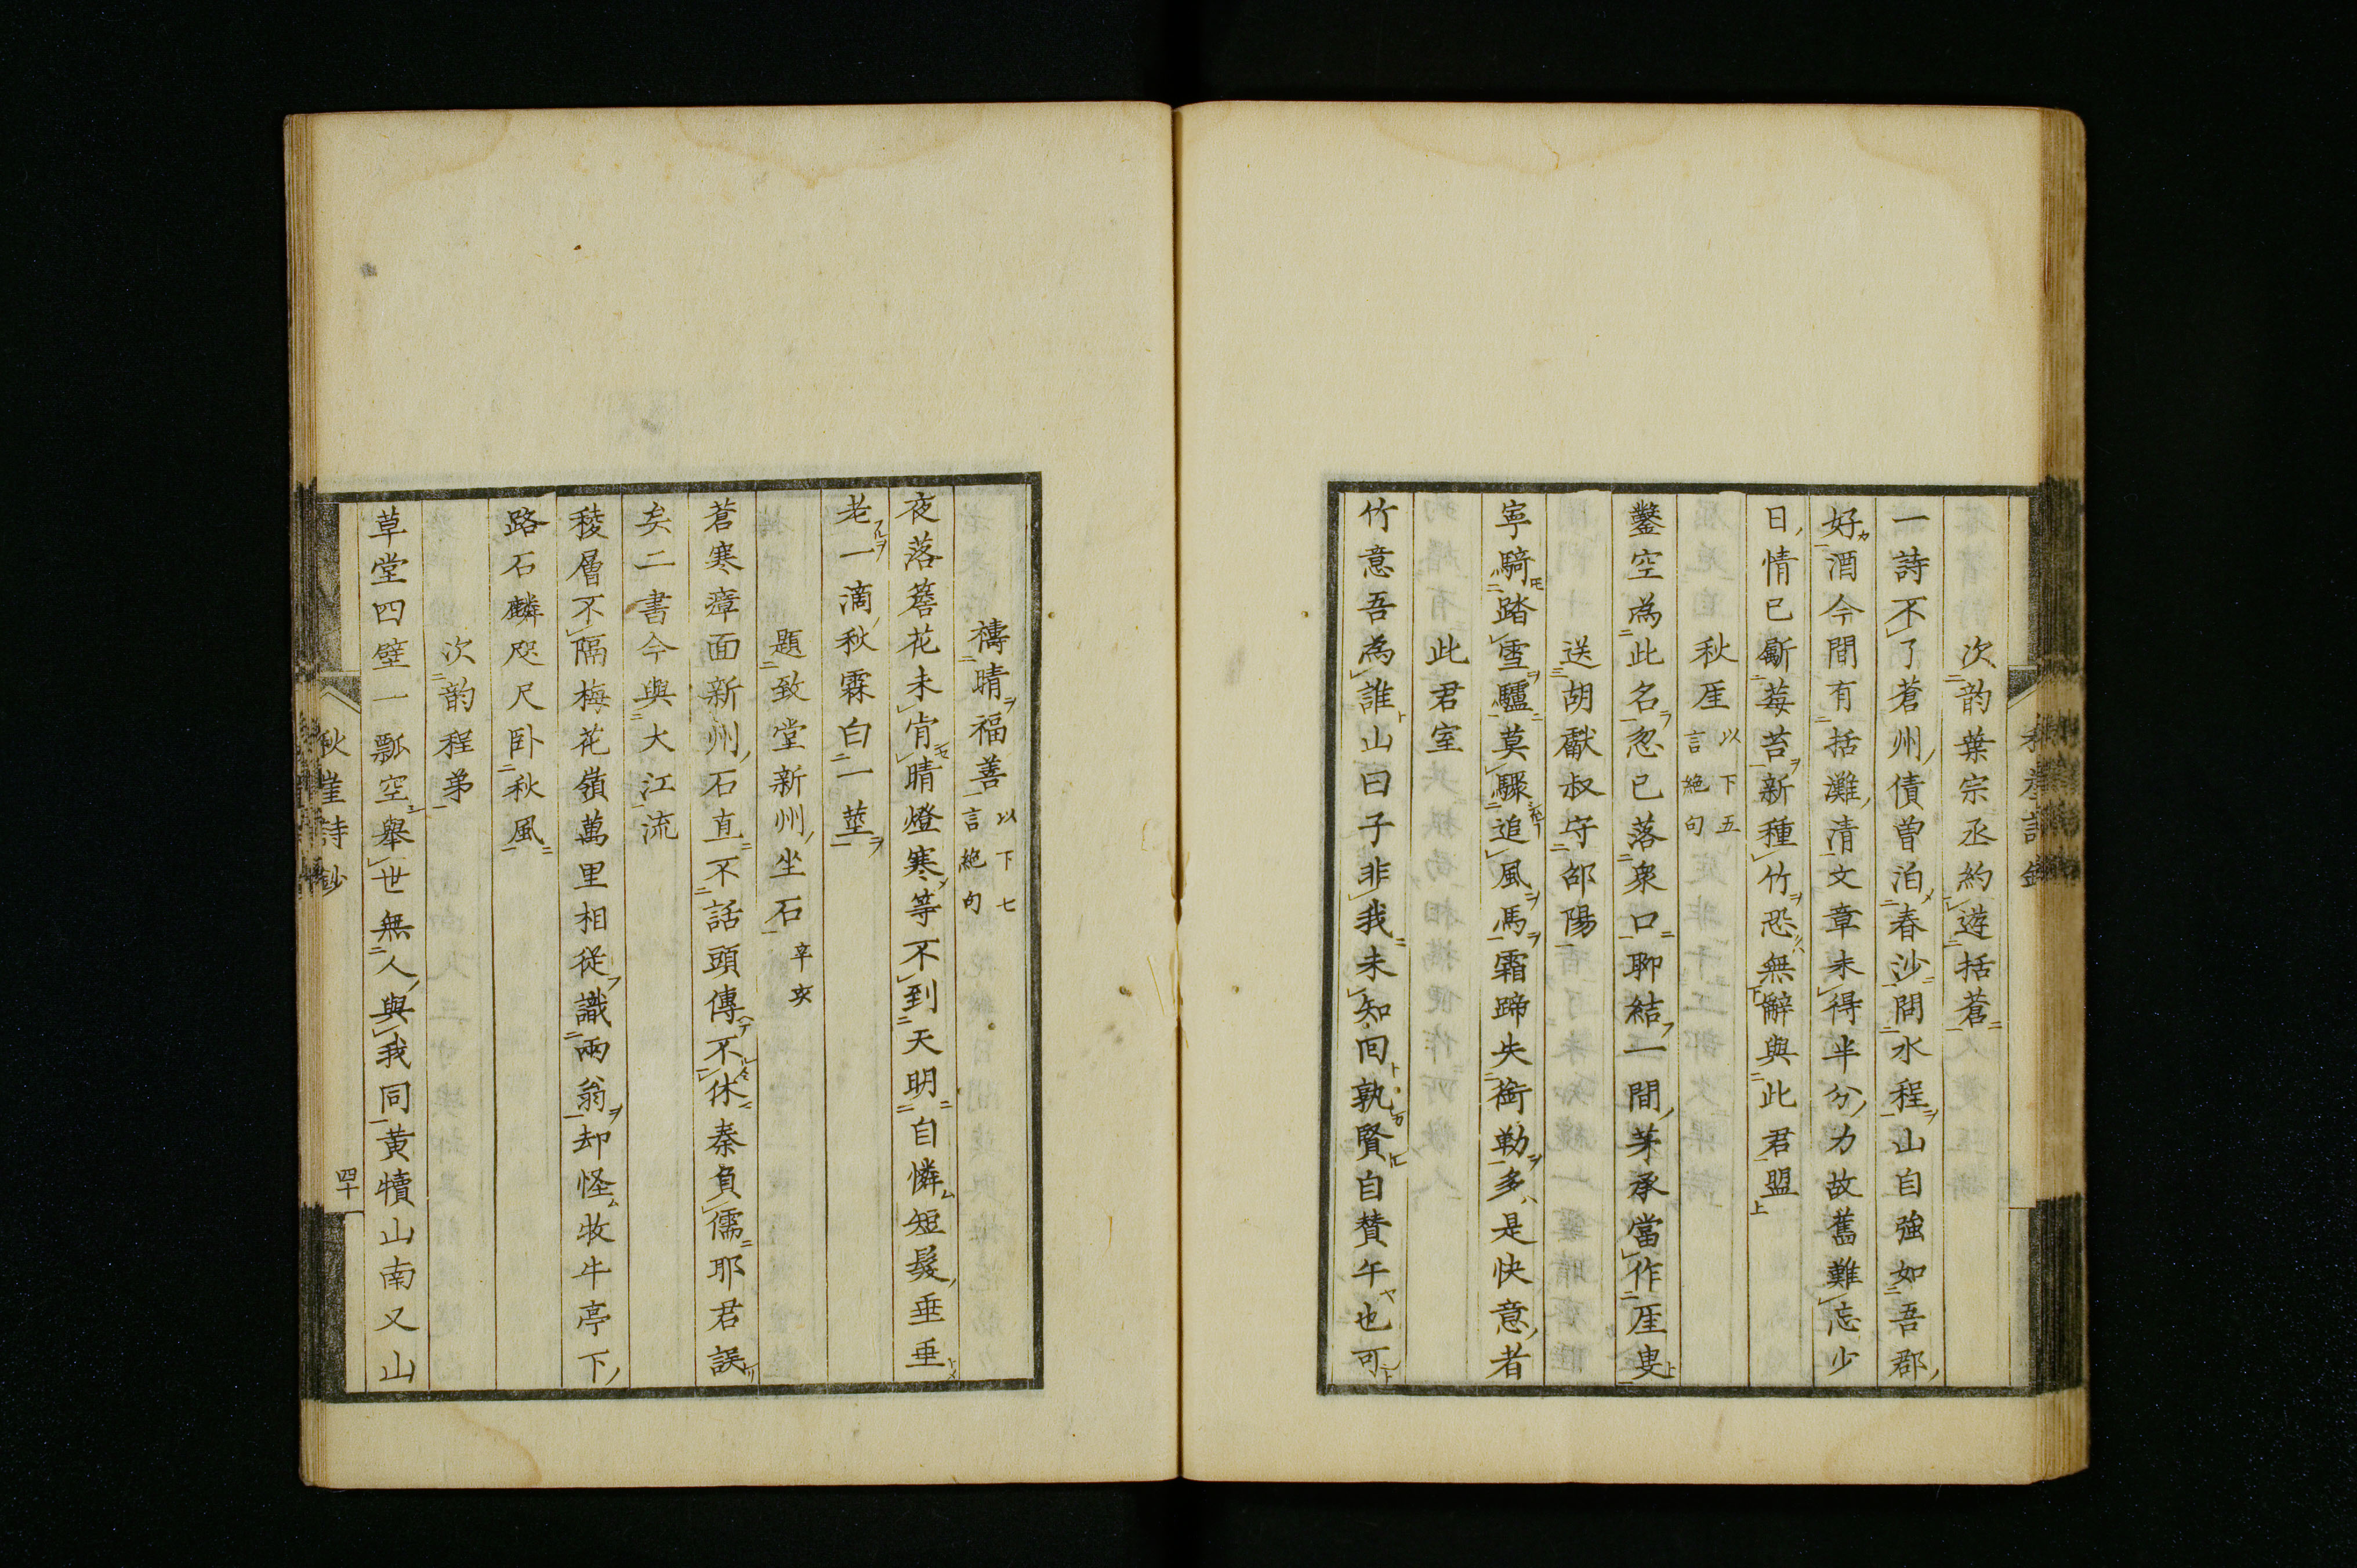 次韵葉宗丞約遊括蒼
一詩不了蒼州債曽泊春沙問水程山自強如吾郡
好酒今間有括灘清文章未得半分力故舊難忘少
日情已斸莓苔新種竹恐無辭與此君盟
秋厓以下五言絶句
鑿空為此名忽已落衆口聊結一間茅承當作厓叟
送胡獻叔守邵陽
寧騎踏雪驢莫驟追風馬霜蹄失銜勒多是快意者
此君室
竹意吾為誰山曰子非我未知回孰賢自賛午也可
禱晴福善以下七言絶句
夜落簷花未肯晴燈寒等不到天明自憐短髮垂垂
老一滴秋霖白一莖
題致堂新州坐石辛亥
蒼寒瘴面新州石直不話頭傳不休秦負儒耶君誤
矣二書今與大江流
稜層不隔梅花嶺萬里相從識兩翁却怪牧牛亭下
路石麟咫尺卧秋風
次韵程弟
草堂四壁一瓢空舉世無人與我同黄犢山南又山
秋崖詩鈔
四十